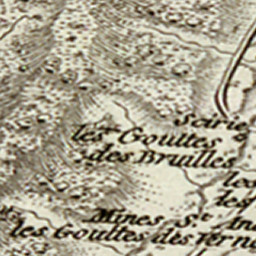 Scirie
les Gouttes
des Bruilles
les
des
Mines St
les Gouttes des